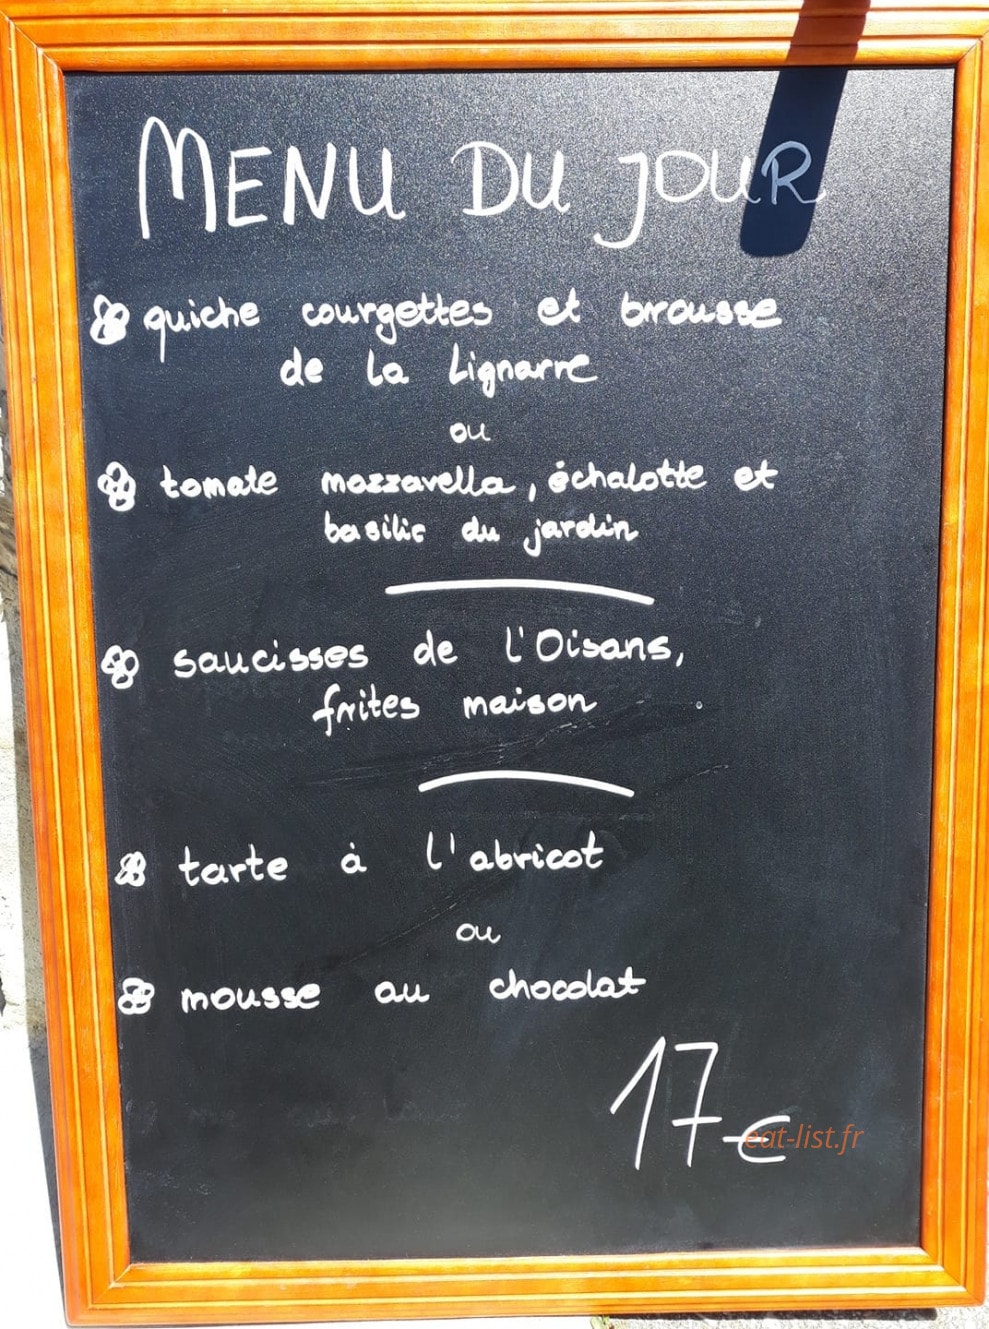 MENU DU JOUR
quiche courgettes et brousse
de la Lignarre
ou
tomate mozzarella, échalotte et
basilic du jardin
saucisses de l'Oisans,
frites maison
tarte à l'abricot
ou
mousse au chocolat
17€
eat-list.fr